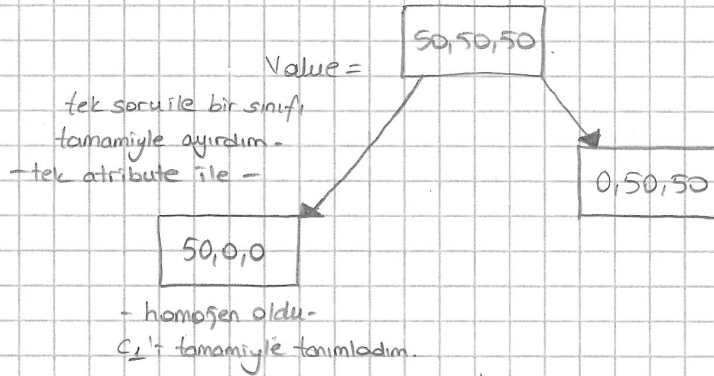 50,50,50
Value =
tek soru ile bir sınıfı
tamamiyle ayırdım -
- tek atribute ile -
0,50,50
50,0,0
- homojen oldu -
C1'i tamamiyle tanımladım.